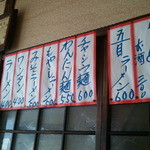 五目ラーメン
600
チャーシュー麺
600
わんたん麺
550
もやしそば
500
みそラーメン
500
ワンタン
400
ラーメン
400